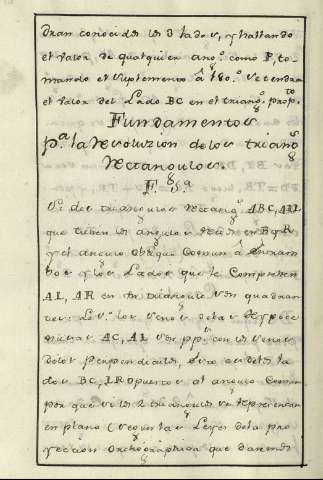 dran conocidos los 3 lados, y hallando
el valor de qualquier angº. como P, to-
mando el suplemento â 180º. se tendra
el valor del Lado BC en el triangº. propto.
Fundamentos
pª. la resoluzion de los triangos
rectangulos.
F. 5ª
Si dos triangulos rectangs. ABC, AIL
que tienen los angulos rectos en B y R
y el angulo obliquo comun â entram
bos y los Lados que le comprehen
AL, AR en un triangulo son quadran
tes: Los senos de las Hypote
nusas AC, AL son pps. con los senos
de los perpendiculos, esto es de los la
dos BC, LR opuestos al angulo comun
por que si los 2 triangulos se representan
en plano (segun las Leyes de la pro
yeccion Orthographica que daremos